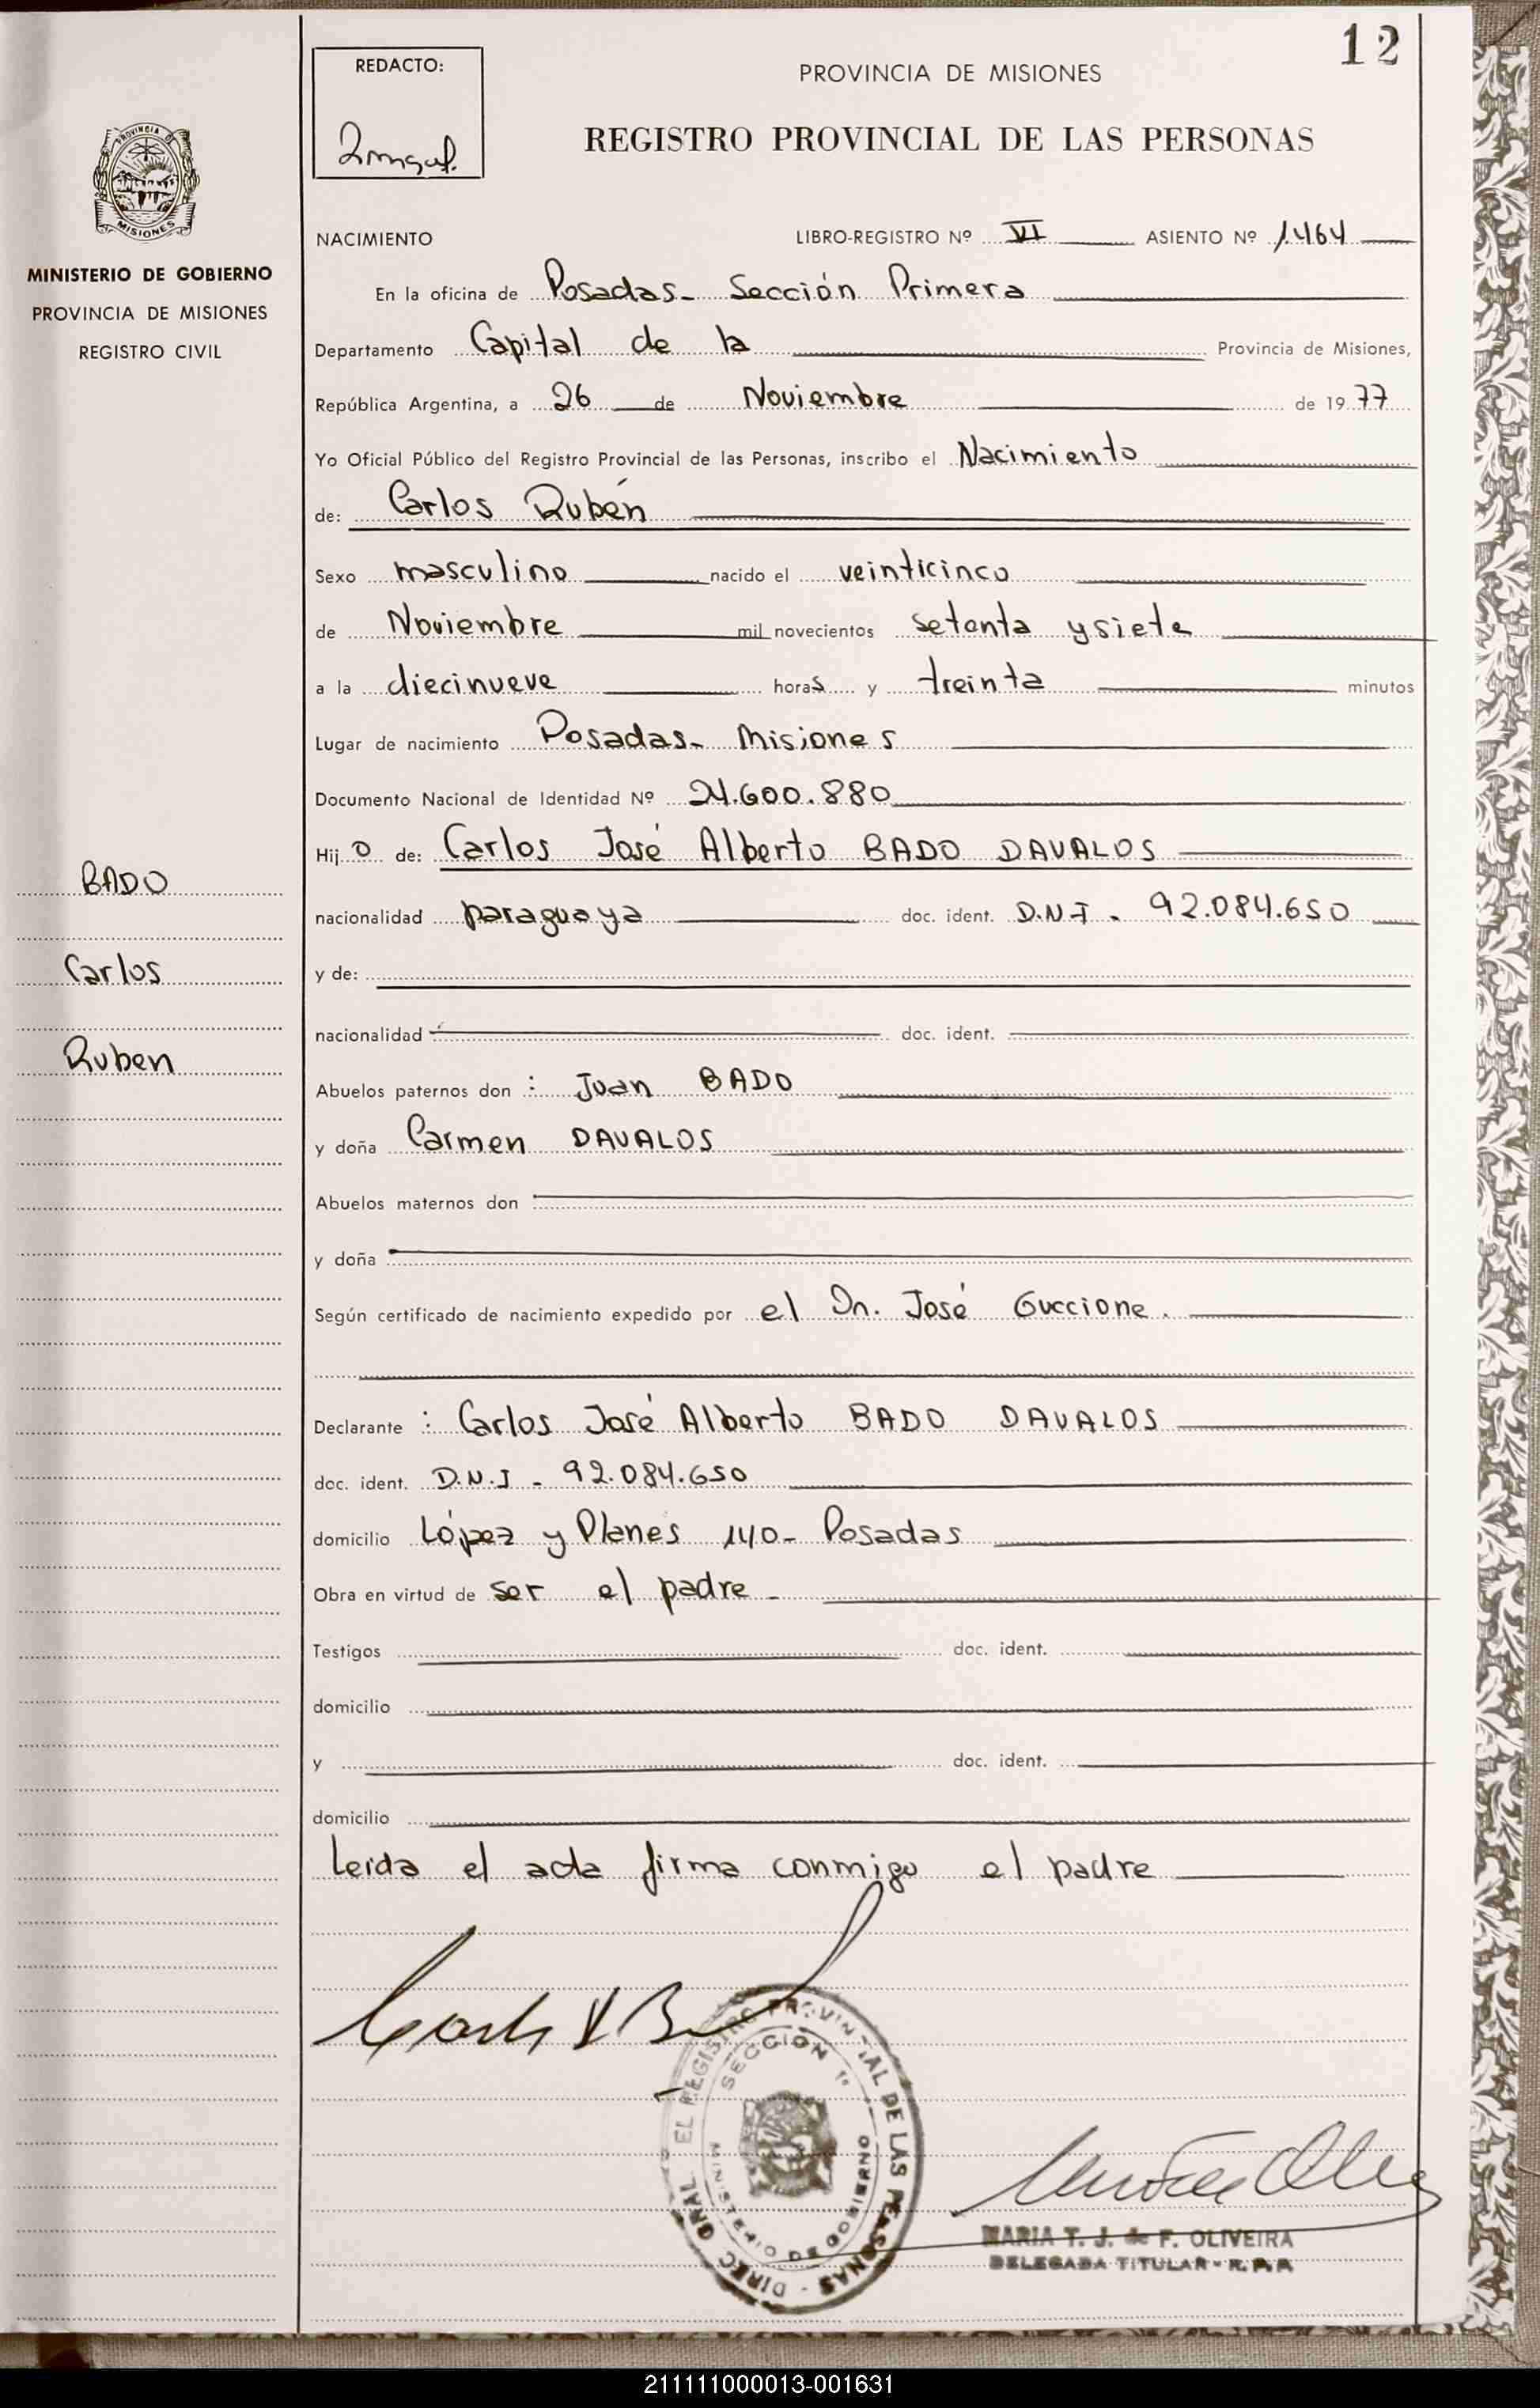 12
REDACTO:
PROVINCIA DE MISIONES
REGISTRO PROVINCIAL DE LAS PERSONAS
PROVINCIA DE
MISIONES
MINISTERIO DE GOBIERNO
PROVINCIA DE MISIONES
REGISTRO CIVIL
BADO
Carlos
Ruben
NACIMIENTO LIBRO-REGISTRO Nº VI ASIENTO Nº 1.464
En la oficina de Posadas- Sección Primera
Departamento Capital de la Provincia de Misiones,
República Argentina, a 26 de Noviembre de 1977
Yo Oficial Público del Registro Provincial de las Personas, inscribo el Nacimiento
de: Carlos Rubén
Sexo masculino nacido el veinticinco
de Noviembre mil novecientos setenta y siete
a la diecinueve horas y treinta minutos
Lugar de nacimiento Posadas- Misiones
Documento Nacional de Identidad Nº 24.600.880
Hijo de: Carlos José Alberto BADO DAVALOS
nacionalidad paraguaya doc. ident. D.N.I - 92.084.650
y de:
nacionalidad doc. ident.
Abuelos paternos don : Juan BADO
y doña Carmen DAVALOS
Abuelos maternos don
y doña
Según certificado de nacimiento expedido por el Dr. José Guccione.
Declarante : Carlos José Alberto BADO DAVALOS
doc. ident. D.N.I - 92.084.650
domicilio López y Planes 1140- Posadas
Obra en virtud de ser el padre -
Testigos doc. ident.
domicilio
y doc. ident.
domicilio
Leida el acta firma conmigo el padre
DIREC GRAL EL REGISTRO PROVINCIAL DE LAS PERSONAS -
SECCION 1º
MINISTERIO DE GOBIERNO
MARIA T. J. de F. OLIVEIRA
DELEGADA TITULAR - R.P.P.
211111000013-001631